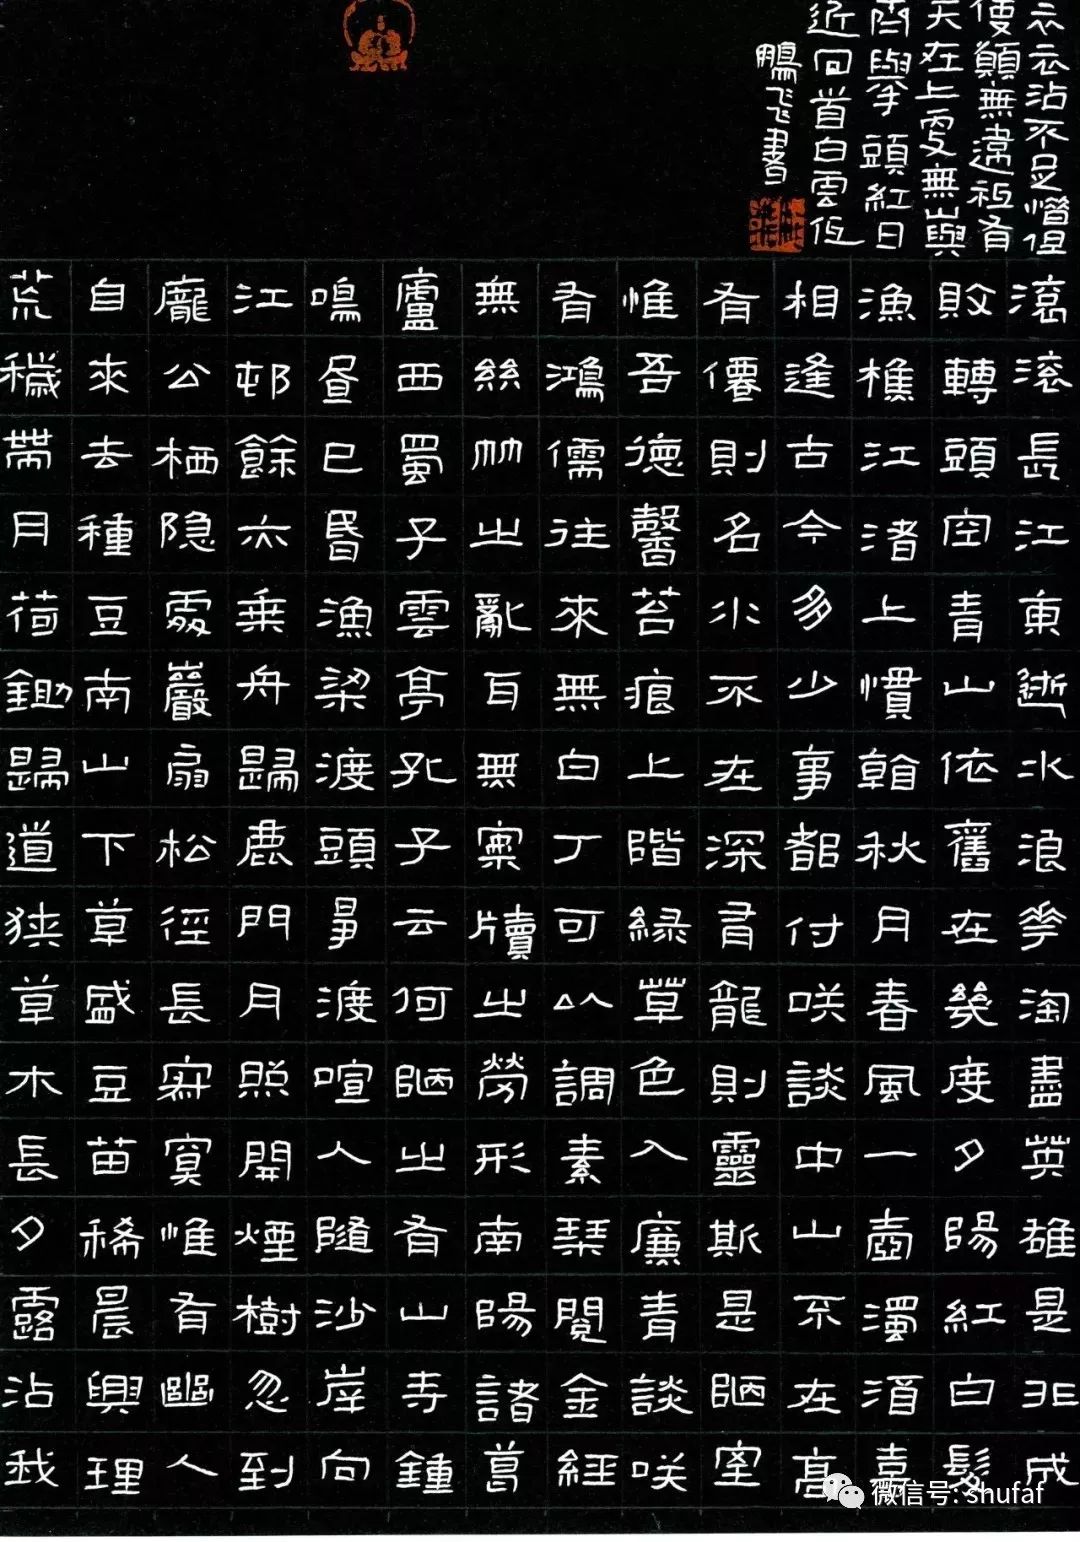 滾滾長江東逝水浪花淘盡英雄是非成
敗轉頭空青山依舊在幾度夕陽紅白髮
漁樵江渚上慣看秋月春風一壺濁酒喜
相逢古今多少事都付咲談中山不在高
有僊則名水不在深有龍則靈斯是陋室
惟吾德馨苔痕上階緑草色入廉青談咲
有鴻儒往來無白丁可以調素琴閱金經
無絲竹之亂耳無案牘之勞形南陽諸葛
廬西蜀子雲亭孔子云何陋之有山寺鍾
鳴昼已昏漁梁渡頭爭渡喧人隨沙岸向
江邨餘亦乘舟歸鹿門月照開煙樹忽到
龐公栖隐處巖扇松徑長寂寞惟有幽人
自來去種豆南山下草盛豆苗稀晨興理
荒穢帶月荷鋤歸道狹草木長夕露沾我
衣衣沾不足惜但
使願無違祗有
天在上更無山與
齊舉頭紅日
近回首白雲低
鵬飛書
微信号: shufaf